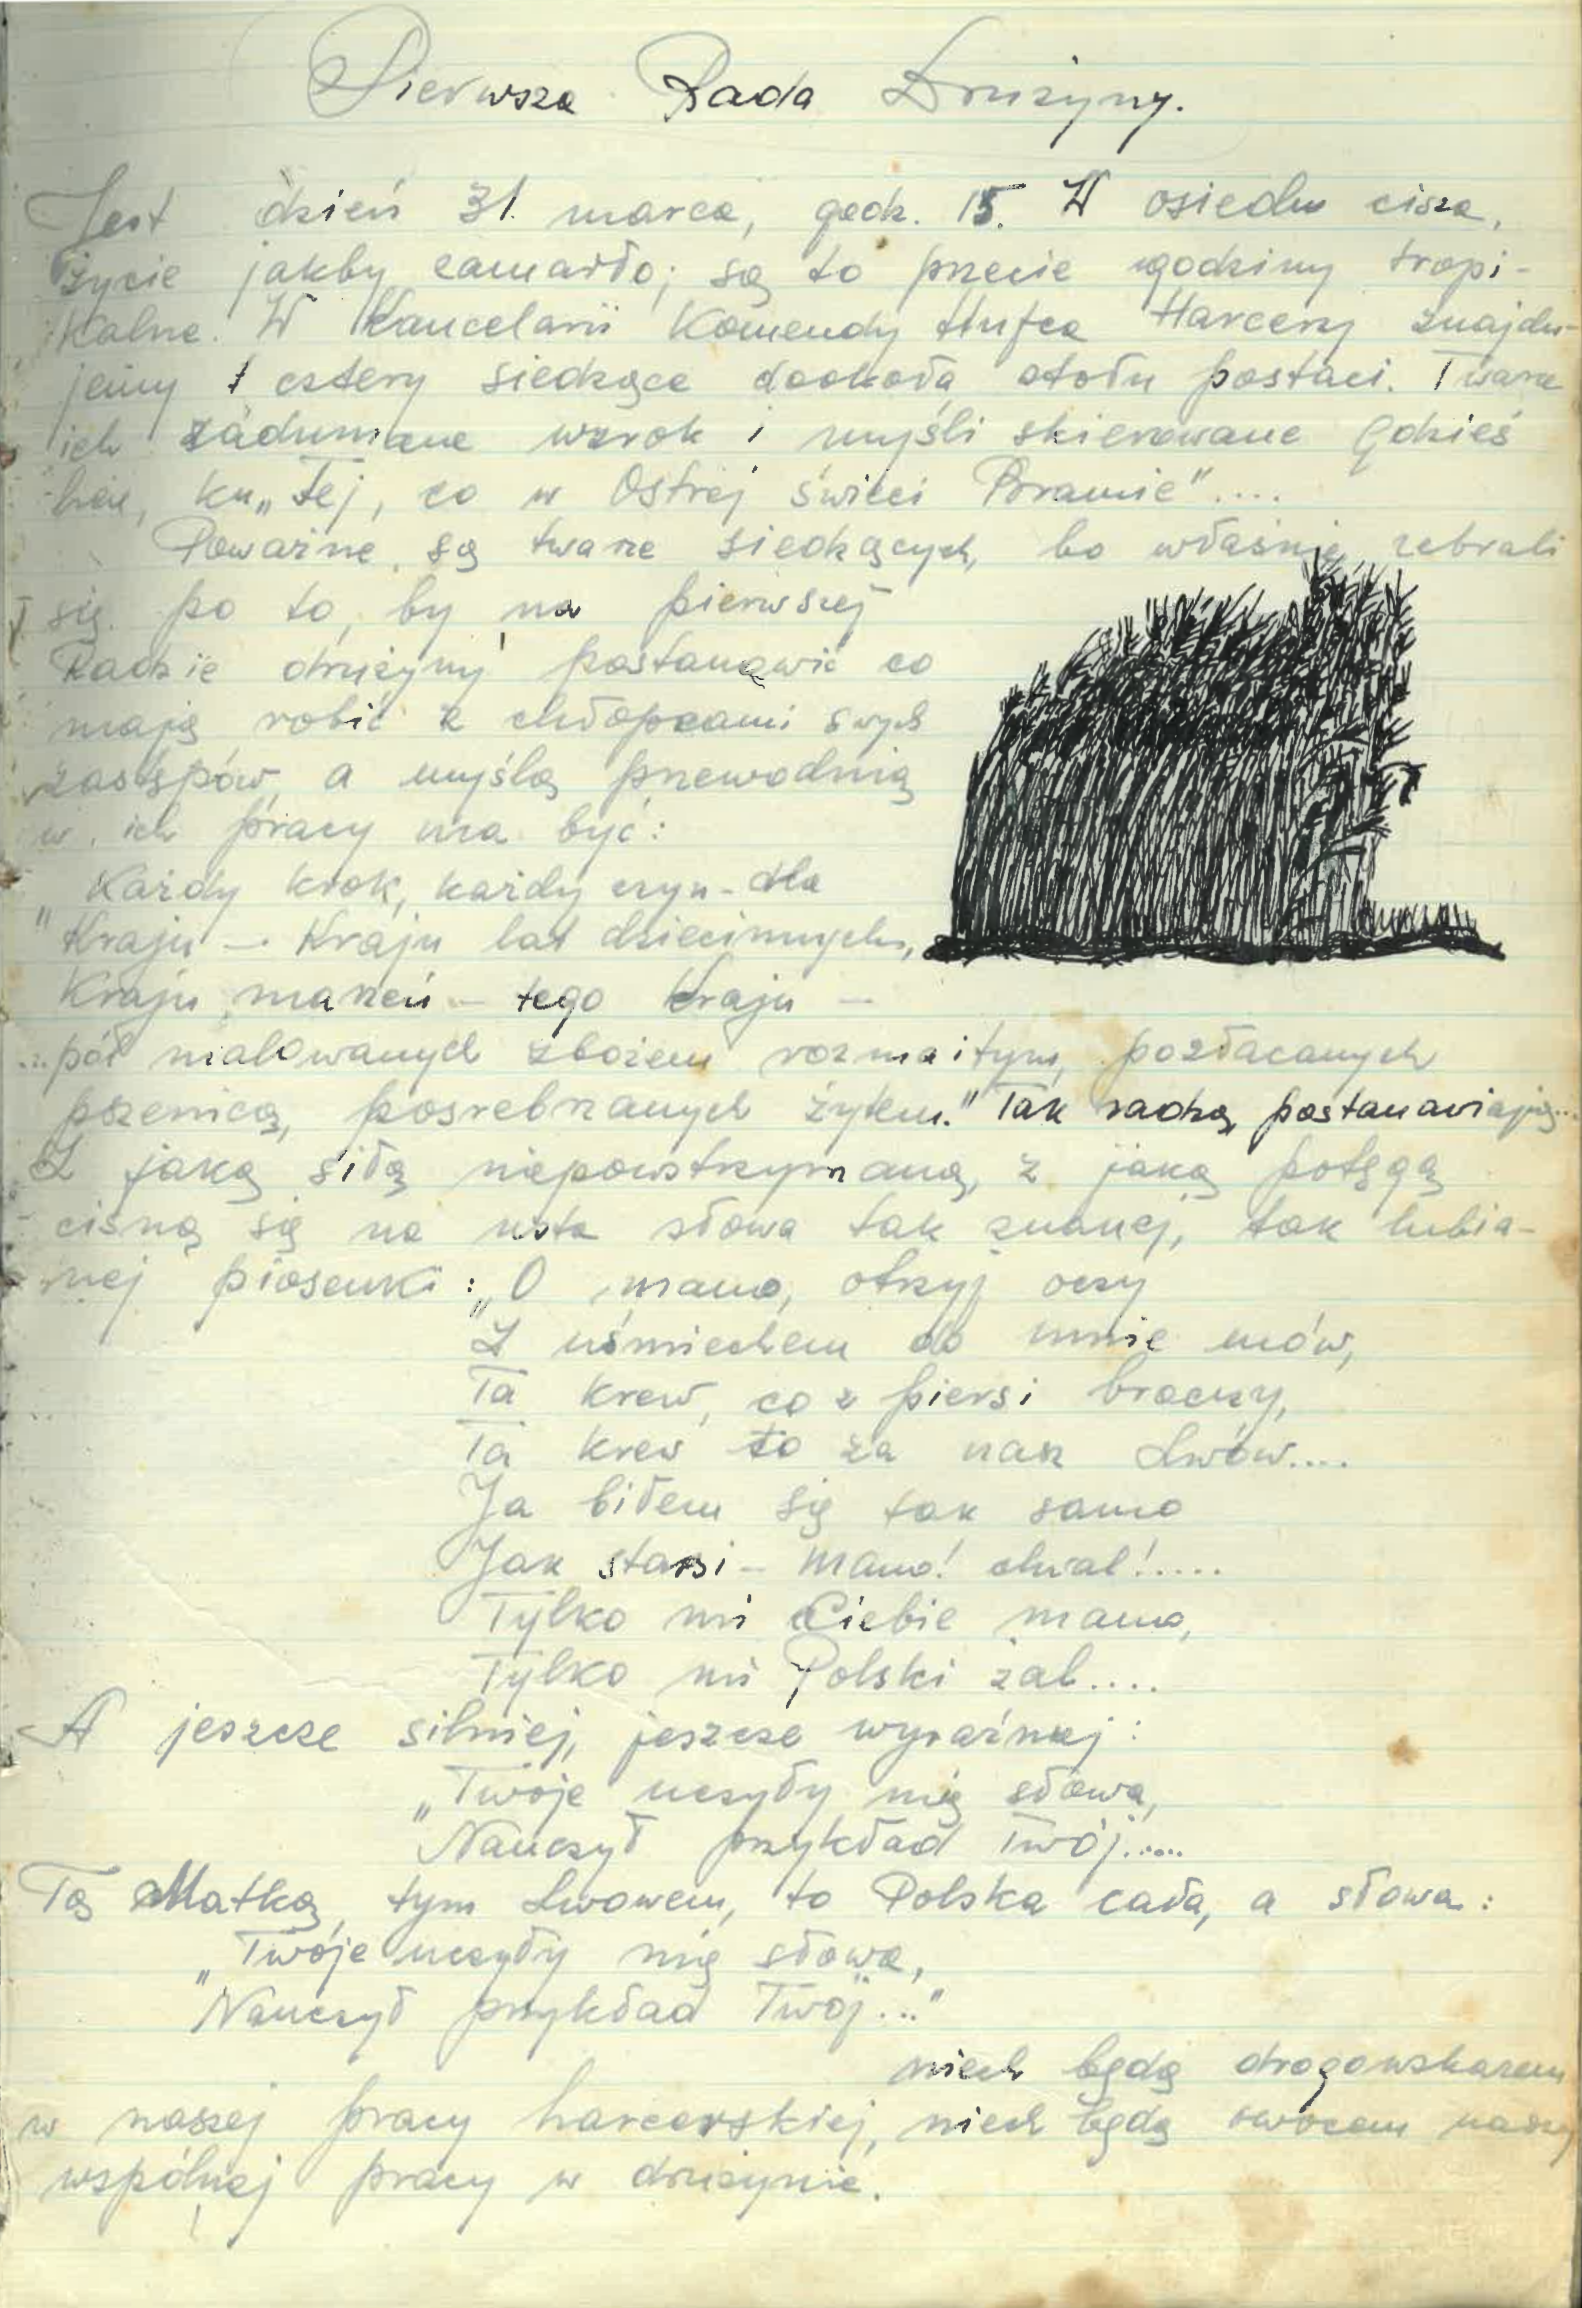 Pierwsza Rada Drużyny.
Jest dzień 31. marca, godz. 15. W osiedlu cisza,
życie jakby zamarło; są to przecie godziny tropi-
kalne. W Kancelarii Komendy Hufca Harcerzy znajdu-
jemy cztery siedzące dookoła stołu postaci. Twarze
ich zadumane wzrok i myśli skierowane gdzieś
hen, ku „Tej, co w Ostrej świeci Bramie"....
Poważne są twarze siedzących, bo właśnie zebrali
się po to, by na pierwszej
Radzie drużyny postanowić co
mają robić z chłopcami swych
zastępów, a myślą przewodnią
w ich pracy ma być:
„Każdy krok, każdy czyn - dla
Kraju - Kraju lat dziecinnych,
Kraju marzeń - tego Kraju -
...pól malowanych zbożem rozmaitym, pozłacanych
pszenicą, posrebrzanych żytem." Tak radzą, postanawiają...
Z jaką siłą niepowstrzymaną, z jaką potęgą
cisną się na usta słowa tak znanej, tak lubia-
nej piosenki: „O mamo, otrzyj oczy
Z uśmiechem do mnie mów,
Ta krew, co z piersi broczy,
Ta krew to za nasz Lwów....
Ja biłem się tak samo
Jak starsi - Mamo! chwal!.....
Tylko mi Ciebie mamo,
Tylko mi Polski żal....
A jeszcze silniej, jeszcze wyraźniej:
„Twoje uczyły mię słowa,
Nauczył przykład Twój.....
Tą Matką, tym Lwowem, to Polska cała, a słowa:
„Twoje uczyły mię słowa,
Nauczył przykład Twój..."
niech będą drogowskazem
w naszej pracy harcerskiej, niech będą owocem naszej
wspólnej pracy w drużynie.